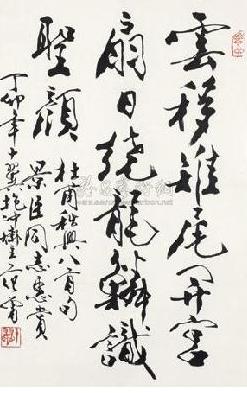 雲移雉尾開宮
扇日繞龍鱗識
聖顏
杜甫秋興八首句
景臣同志惠賞
丁卯年大冀